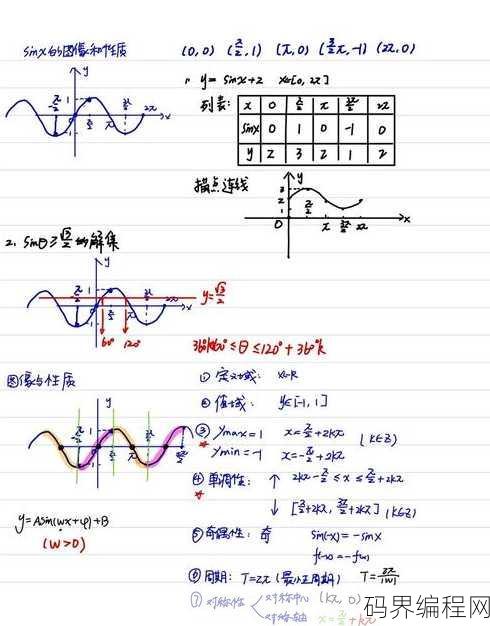 sinx的图像和性质
(0,0) (π/2,1) (π,0) (3/2π,-1) (2π,0)
1. y = sinx+2 x∈[0,2π]
列表:
x 0 π/2 π 3π/2 2π
sinx 0 1 0 -1 0
y 2 3 2 1 2
描点连线
2. sinθ≥√3/2的解集
y=√3/2
60° 120°
≤θ≤120°+360°k
图像与性质
① 定义域: x∈R
② 值域: y∈[-1,1]
③ ymax=1 x=π/2+2kπ (k∈Z)
ymin=-1 x=-π/2+2kπ
④ 单调性: ↑ 2kπ-π/2≤x≤π/2+2kπ
↓ [π/2+2kπ, 3π/2+2kπ] (k∈Z)
y=Asin(wx+φ)+B
(w>0)
⑤ 奇偶性: 奇 sin(-x)=-sinx
f(-x)=-f(x)
⑥ 周期: T=2π (最小正周期) T=2π/|w|
⑦ 对称性 对称中心 (kπ,0)
对称轴 x=π/2+kπ
码界编程网